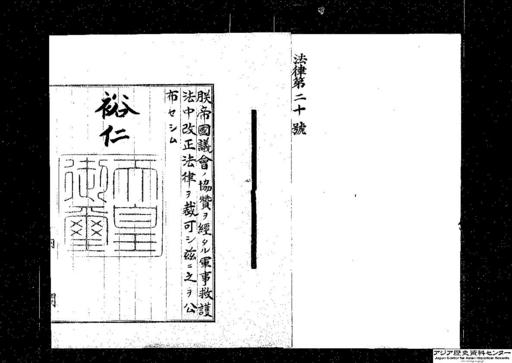 法律第二十號
朕帝國議會ノ協贊ヲ經タル軍事救護
法中改正法律ヲ裁可シ玆ニ之ヲ公
布セシム
裕仁
天皇御璽
アジア歴史資料センター
Japan Center for Asian Historical Records